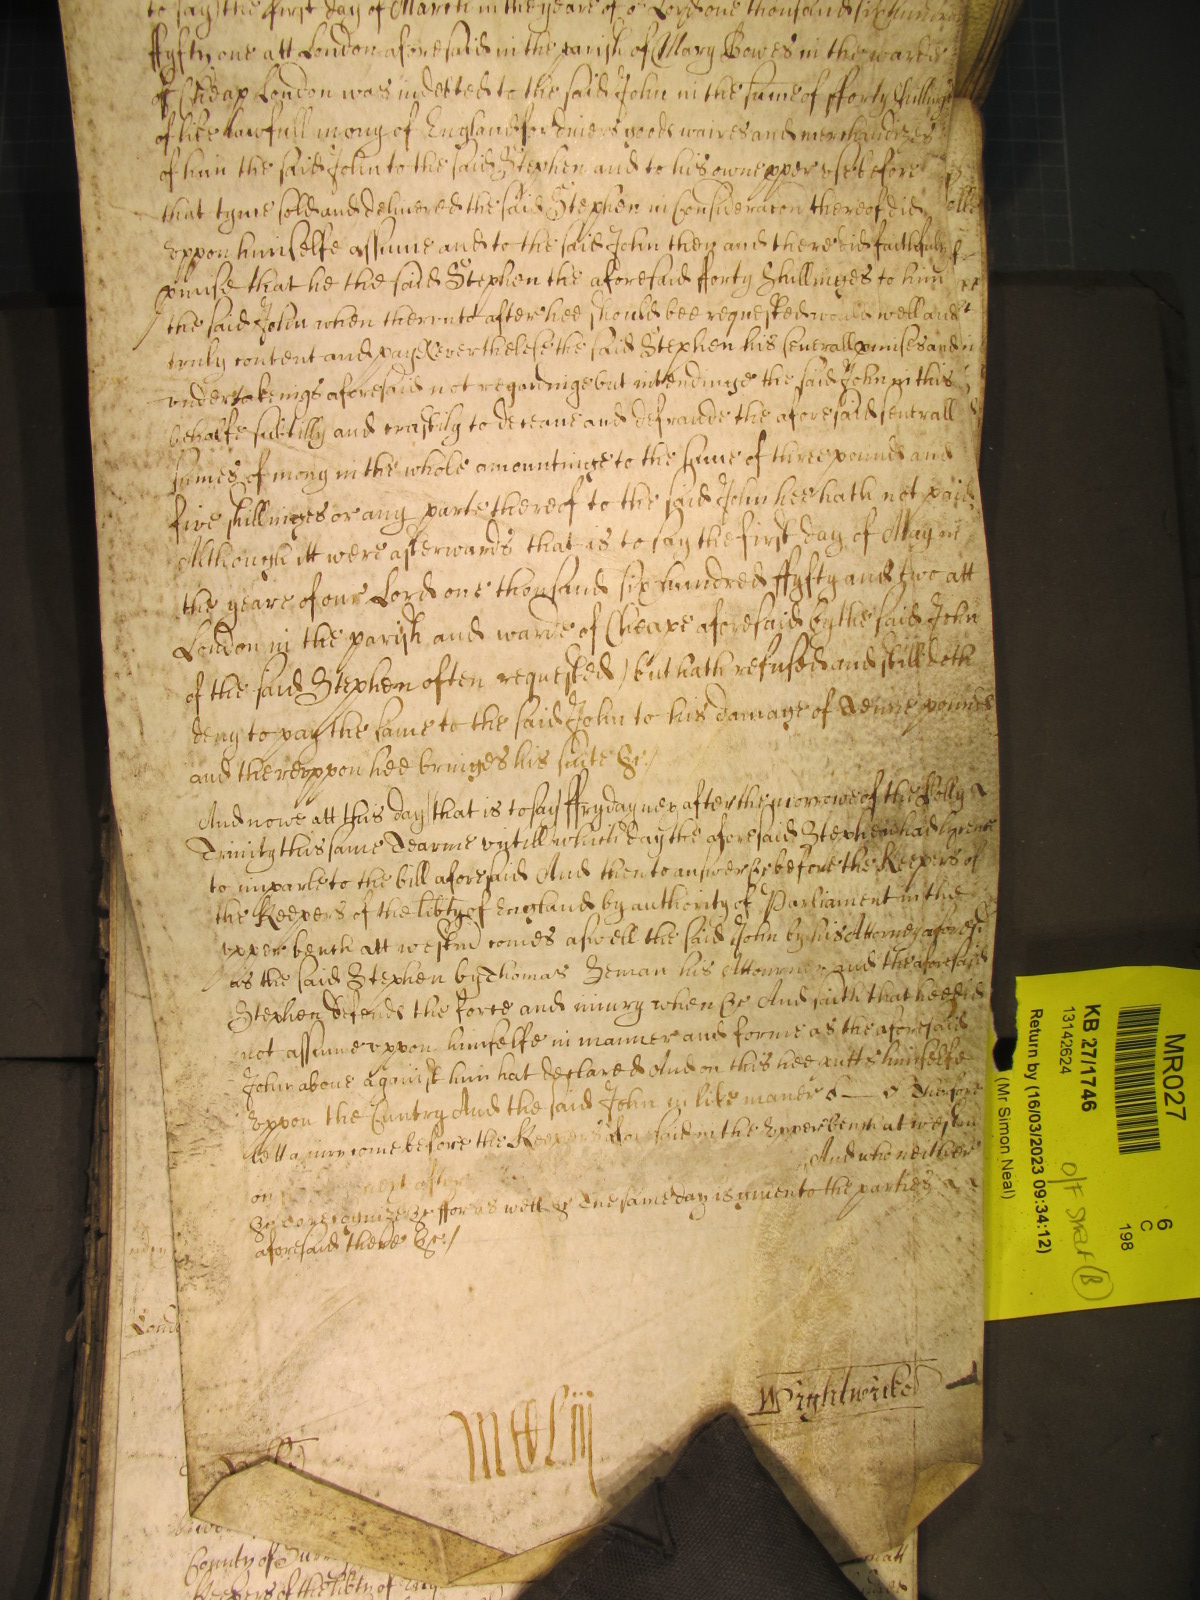 to say the first day of March in the yeare of or Lord one thousand six hundred
ffyfty one att London aforesaid in the parish of Mary Bowes in the warde
of Cheap London was indebted to the said John in the sume of fforty shillings
of like lawfull mony of England for divers goods waires and merchandizes
of him the said John to the said Stephen and to his owne pper use before
that tyme sold and delivered the said Stephen in Consideracon thereof did
uppon himselfe assume and to the said John then and there did faithfully
pmise that he the said Stephen the aforesaid fforty shillinges to him
the said John when thereunto after hee should bee requested would well and
truly content and pay Neverthelesse the said Stephen his severall pmises and
undertakeings aforesaid not regardinge but intendinge the said John in this
behalfe subtilly and craftily to deceave and defraude the aforesaid severall
sumes of mony in the whole amountinge to the sume of three pounds and
five shillinges or any parte thereof to the said John hee hath not paid
Although itt were afterwards that is to say the first day of May in
the yeare of our Lord one thousand six hundred ffyfty and two att
London in the parish and warde of Cheape aforesaid by the said John
of the said Stephen often requested / but hath refused and still doth
deny to pay the same to the said John to his damage of pounds
and thereuppon hee bringes his suite &c /
And nowe att this day that is to say ffryday nex after the morrowe of the Holly
Trinity this same Tearme untill which day the aforesaid Stephen had lycence
to imparle to the bill aforesaid And then to answer &c before the Keepers of
the Keepers of the libty of England by authority of Parliament in the
upper bench att westm comes aswell the said John by his Attorney aforesd
as the said Stephen by Thomas Zeman his Attourney and the aforesaid
Stephen defends the force and iniury when &c And saith that hee did
not assume uppon himselfe in manner and forme as the aforesaid
John above against him hat declared And on this hee putts himselfe
uppon the Cuntry And the said John in like maner &c Therefore
lett a iury come before the Keepers aforesaid in the upper bench at westm
on next after And who neither
&c to recognize &c ffor as well &c The same day is given to the parties
aforesaid there &c /
Wrightwicke
Lond
County of Surr
Keepers of the libty of Eng
MR027
KB 27/1746
13142624
Return by (16/03/2023 09:34:12)
(Mr Simon Neal)
6
C
198
O/F
(B)